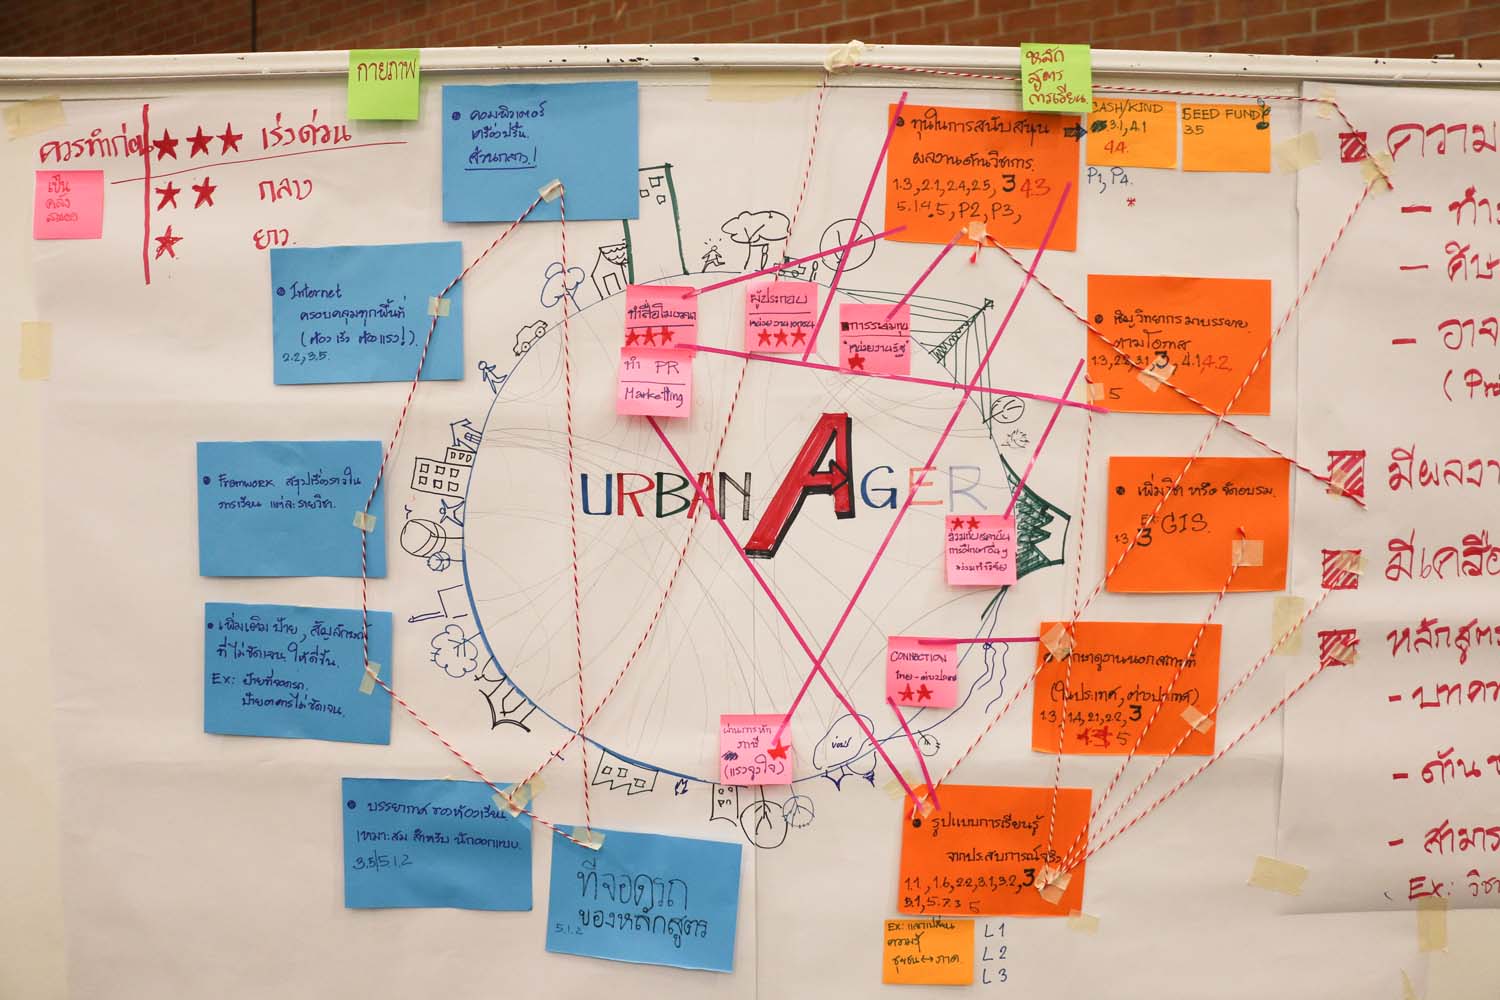 กายภาพ
หลัก
สูตร
การเรียน.
ควรทำก่อน
เร่งด่วน
กลาง
ยาว
เป็น
คลัง
คอมพิวเตอร์
เครื่องปริ้น.
ส่วนกลาง!
Internet
ครอบคลุมทุกพื้นที่
(ต้องเร็ว ต้องแรง!).
2.2, 3.5.
Framework สรุปเรื่องราวใน
การเรียน แต่ละรายวิชา.
เพิ่มเติม ป้าย, สัญลักษณ์
ที่ไม่ชัดเจน ให้ดีขึ้น.
Ex: ป้ายที่จอดรถ.
ป้ายอาคารไม่ชัดเจน.
บรรยากาศ ของห้องเรียน.
เหมาะสม สำหรับ นักออกแบบ.
3.5/5.1.2
ที่จอดรถ
ของหลักสูตร
5.1.2
ทำสื่อโฆษณา
ทำ PR
Marketting
ผู้ประกอบ
หน่วยงานเอกชน
การระดมทุน
"หน่วยงานรัฐ"
URBAN AGER
ร่วมกับสถาบัน
การศึกษาอื่นๆ
ร่วมทำวิจัย
CONNECTION
ไทย-ต่างประเทศ
ผ่านการทำ
ภาษี
(แรงจูงใจ)
ทุนในการสนับสนุน
ผลงานด้านวิชาการ.
1.3, 2.1, 2.4, 2.5, 3 4.3
5.1.4.5, P2, P3,
CASH/KIND
3.1, 4.1
4.4.
P1, P4.
*
SEED FUND
3.5
เชิญวิทยากรมาบรรยาย
ตามโอกาส
1.3, 2.2, 3.1, 3, 4.1, 4.2.
5
เพิ่มวิชา หรือ จัดอบรม.
Ex: GIS.
1.3 3
ศึกษาดูงานนอกสถานที่
(ในประเทศ, ต่างประเทศ)
1.3, 1.4, 2.1, 2.2, 3
5
รูปแบบการเรียนรู้
จากประสบการณ์จริง
1.1, 1.6, 2.2, 3.1, 3.2, 3
5
Ex: แลกเปลี่ยน
ความรู้
ชุมชน↔ภาค.
L 1
L 2
L 3
ความ
- ทำ
- ศิษ
- อาจ
(Pro
มีผลงา
มีเครือ
หลักสูตร
- บทคว
- ด้าน
- สามาร
Ex: วิชา